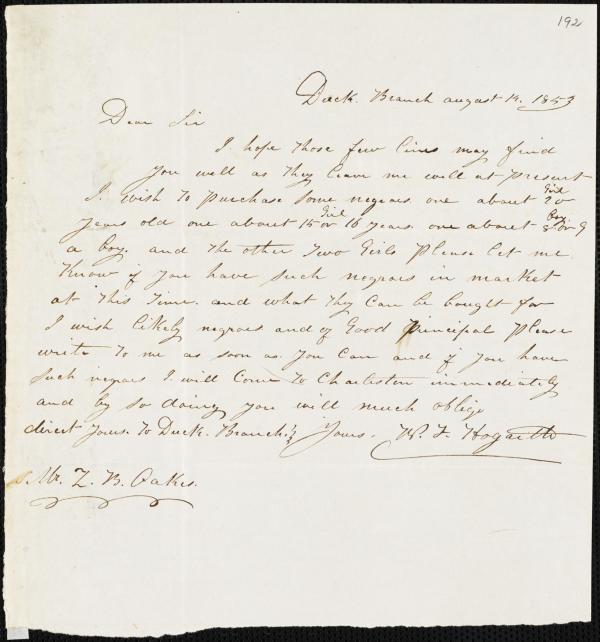 192
Duck Branch august 14. 1853
Dear Sir
I hope those few lines may find
you well as they leave me well at present
I wish to purchase some negroes one about Girl 20
years old one about 15 or Girl 16 years one about Boy 8 or 9
a boy. and the other two Girls Please let me
Know if you have such negroes in market
at this time. and what they can be bought for
I wish likely negroes and of Good Principal Please
write to me as soon as you can and if you have
such negroes I will Come to Charleston immediately
and by so doing you will much oblige
direct yours. to Duck. Branch Yours. W. F. Hogarth
Mr. Z. B. Oakes.